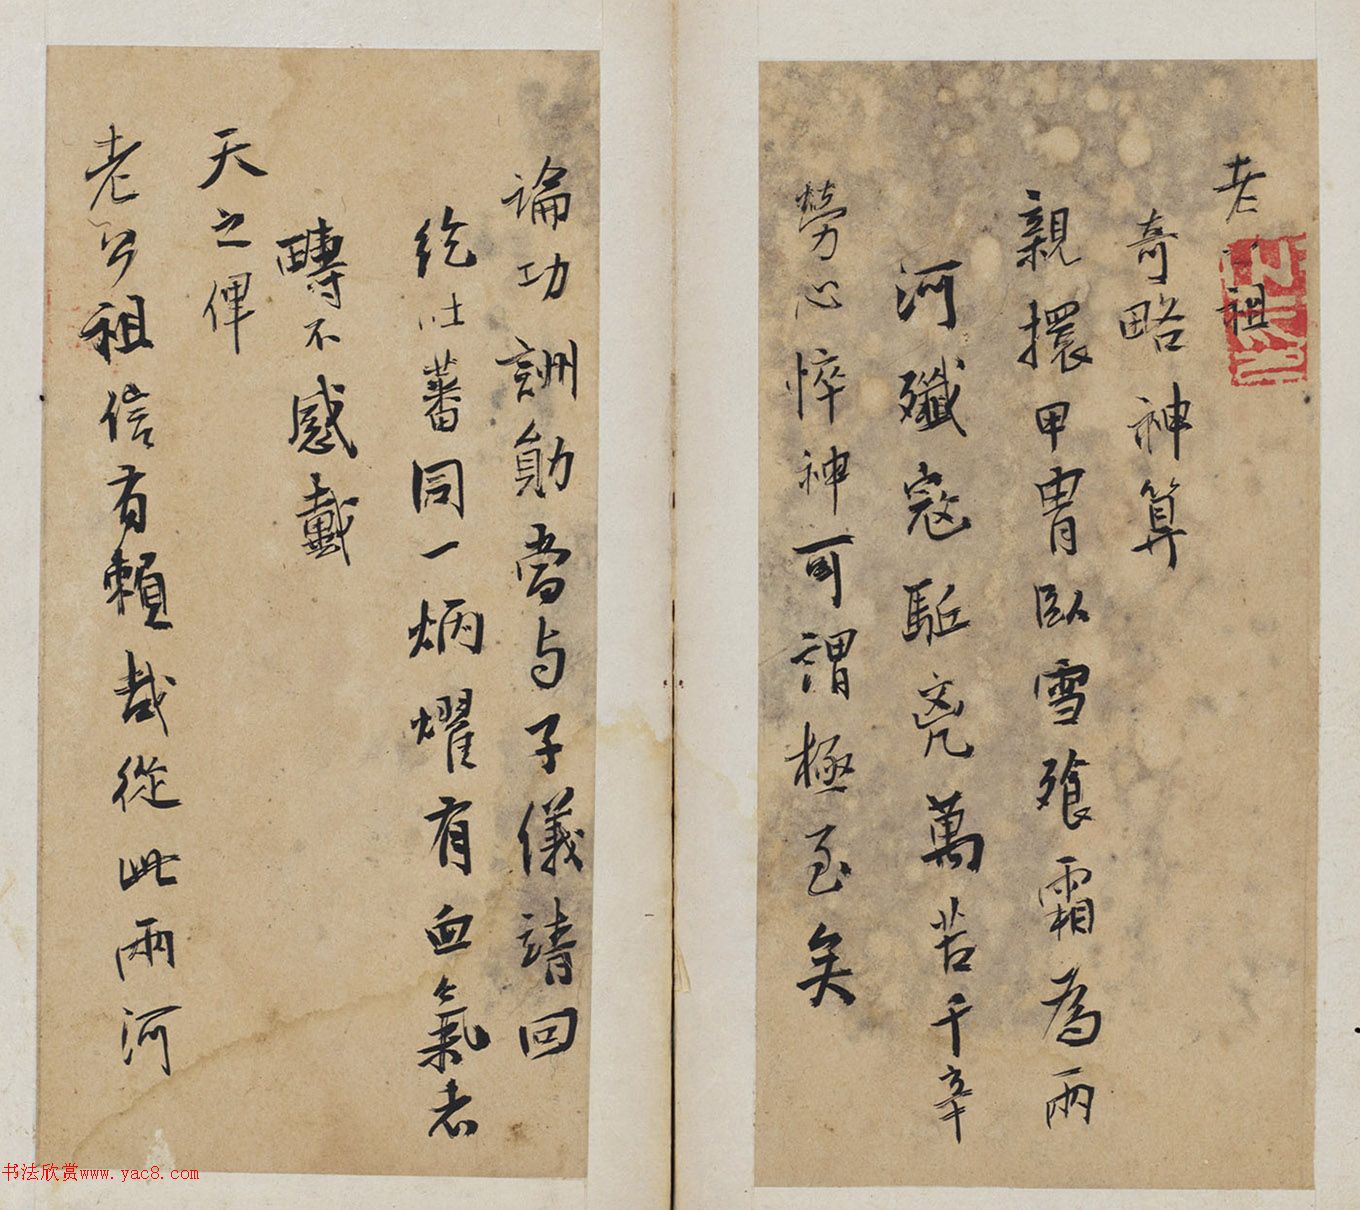 老公祖
奇略神算
親擐甲胄臥雪飱霜為兩
河殲寇駈兇萬苦千辛
勞心悴神可謂極至矣
論功詶勛當与子儀靖回
紇吐蕃同一炳燿有血氣者
疇不感戴
天之俾
老公祖信有賴哉從此兩河
书法欣赏www.yac8.com